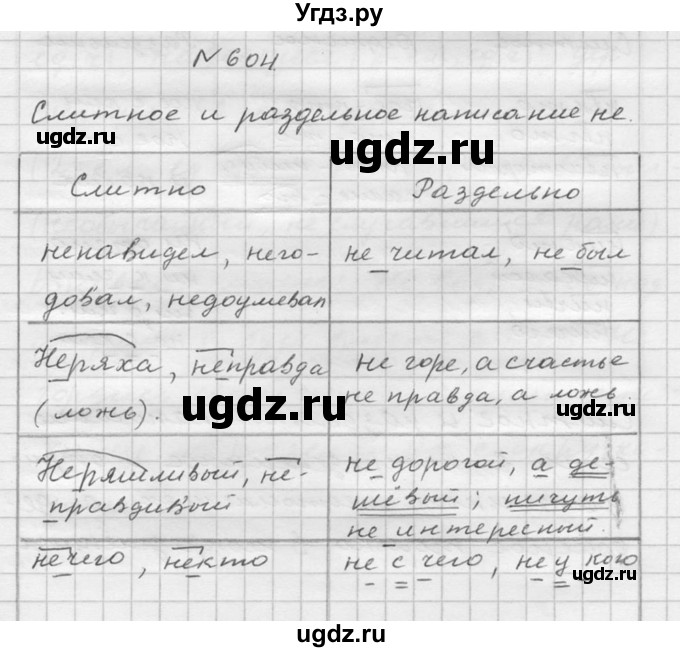 Угдз.ру
№604.
Слитное и раздельное написание не.
ugdz.ru
ugdz.ru
Слитно
Раздельно
ugdz.ru
ненавидел, него-
довал, недоумевал
не читал, не был
Неряха, неправда
(ложь).
не горе, а счастье
не правда, а ложь.
ugdz.ru
ugdz.ru
Неряшливый, не-
правдивый
не дорогой, а де-
шёвый; ничуть
не интересный.
ugdz.ru
нечего, некто
не с чего, не у кого
ugdz.ru
ugdz.ru